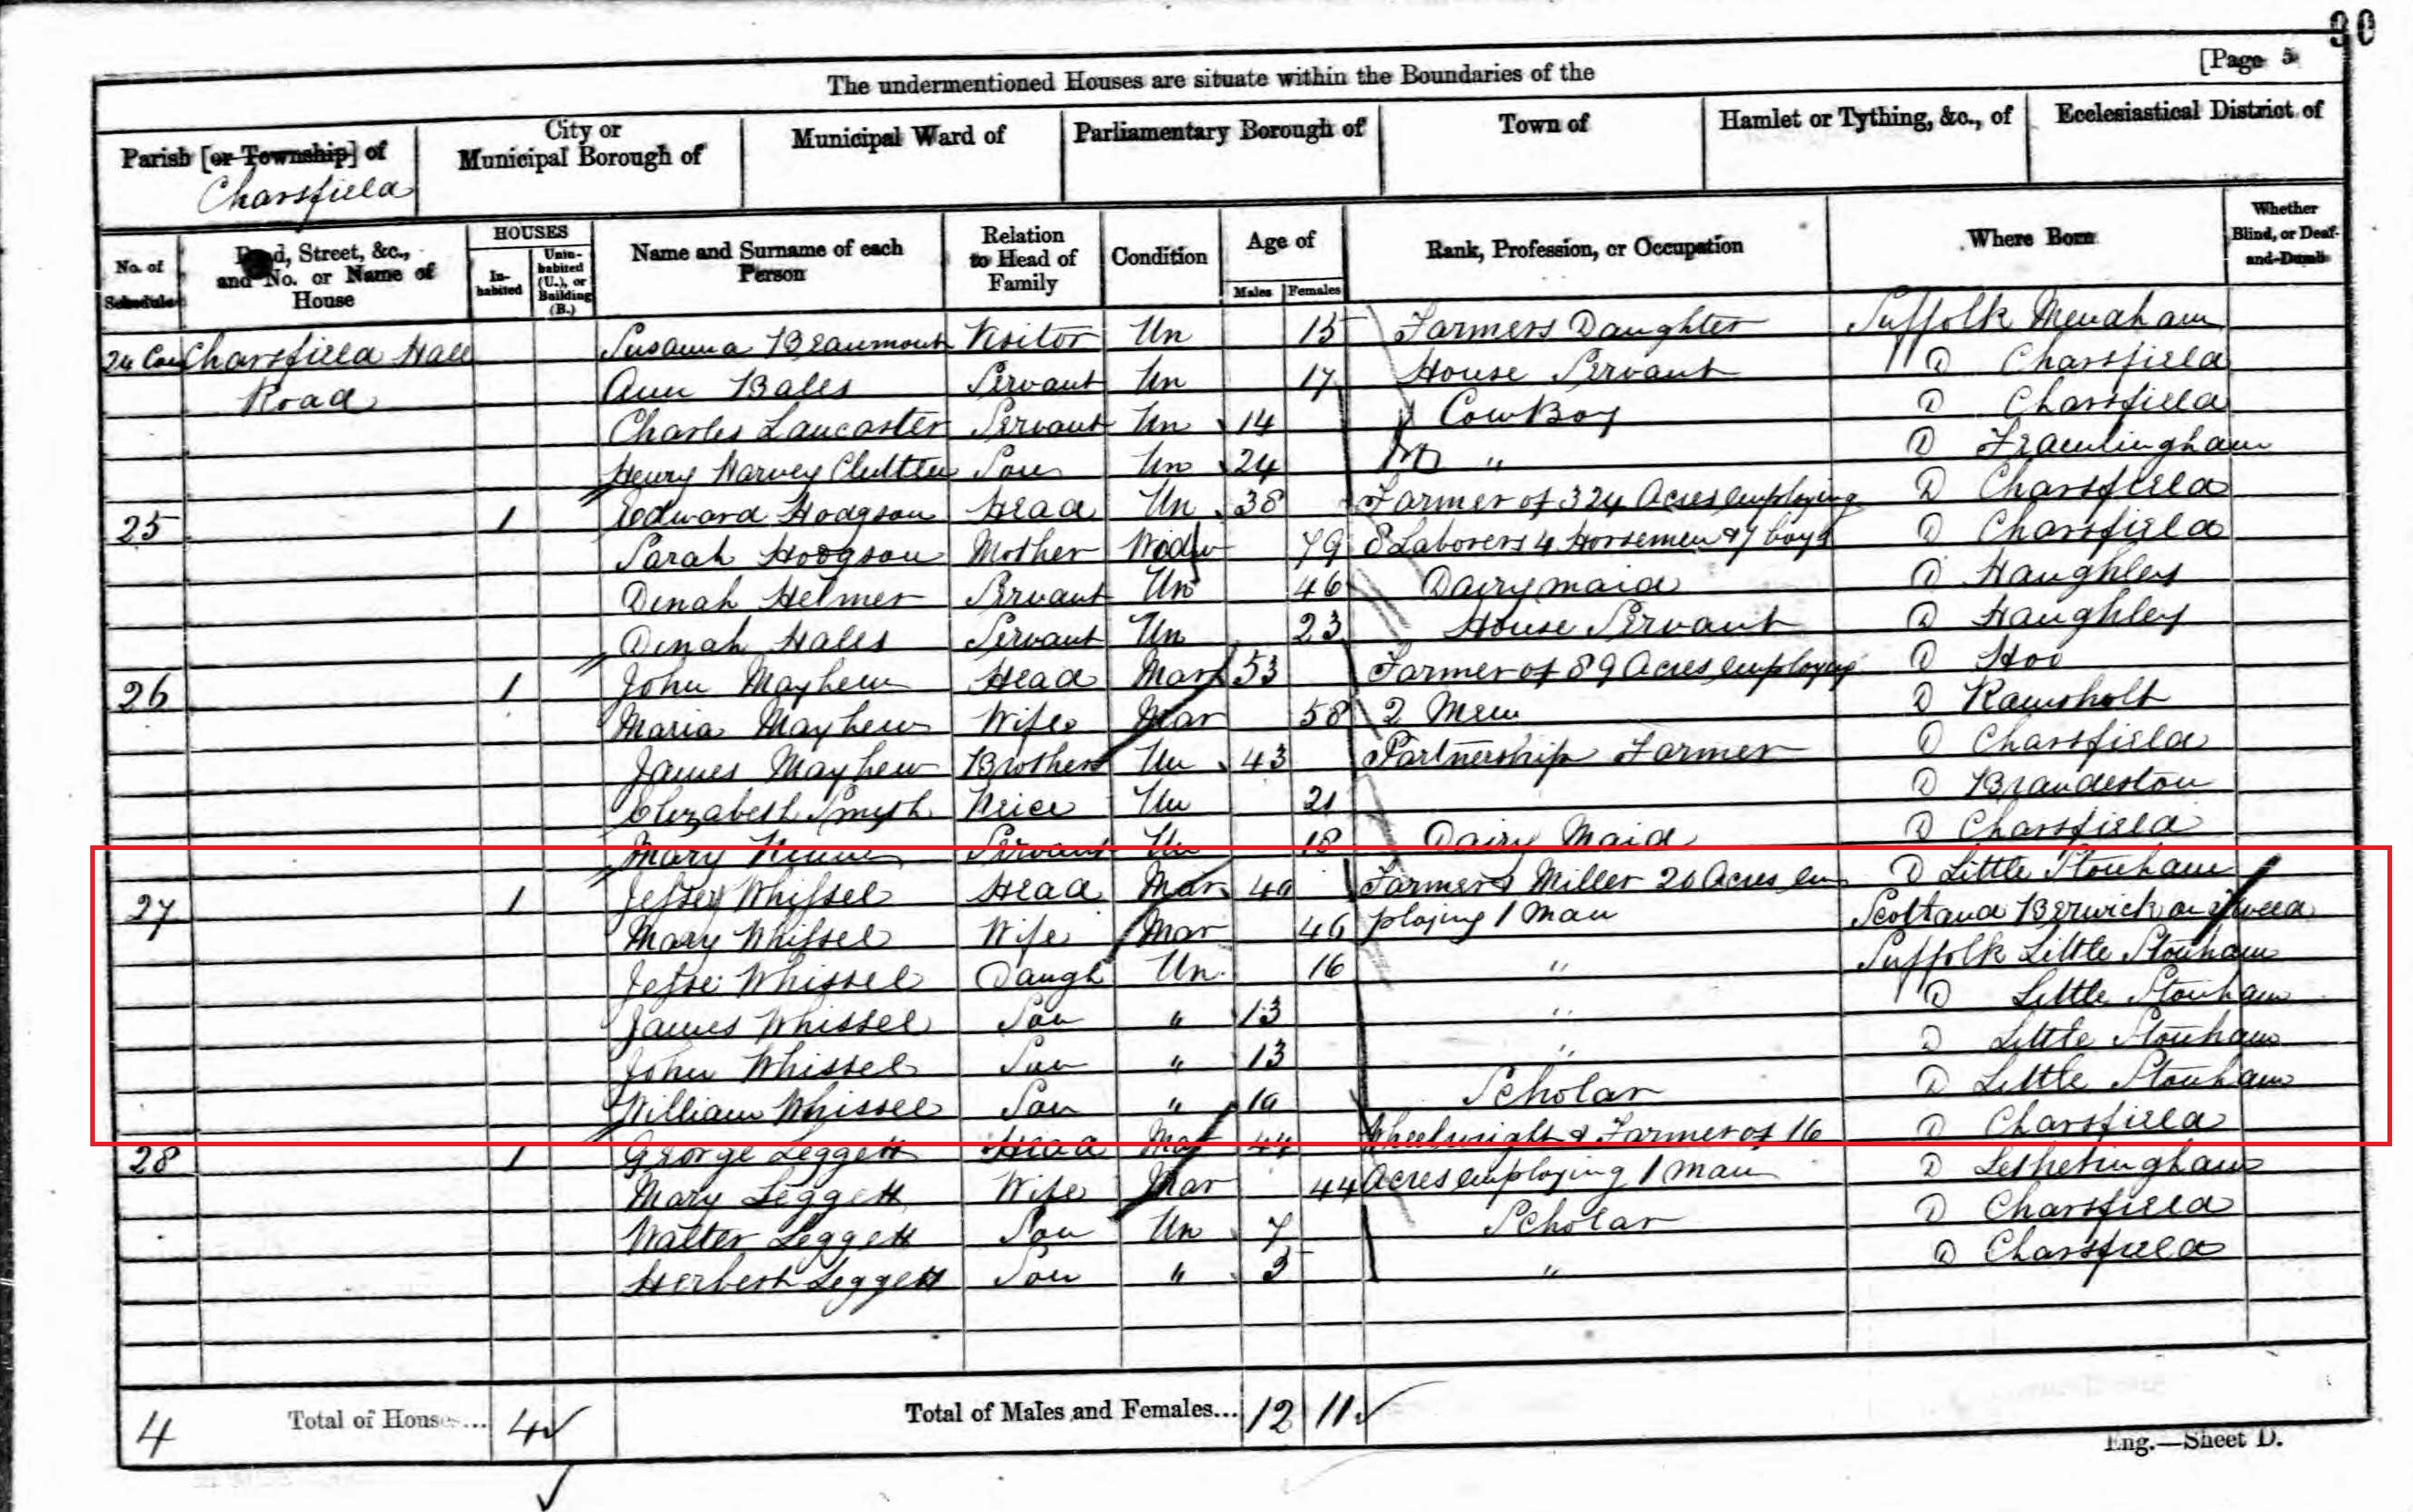 90
[Page 5
The undermentioned Houses are situate within the Boundaries of the
Parish [or Township] of
Charsfield
City or
Municipal Borough of
Municipal Ward of
Parliamentary Borough of
Town of
Hamlet or Tything, &c., of
Ecclesiastical District of
No. of
Schedule
Road, Street, &c.,
and No. or Name of
House
HOUSES
In-
habited
Unin-
habited
(U.), or
Building
(B.)
Name and Surname of each
Person
Relation
to Head of
Family
Condition
Age of
Males Females
Rank, Profession, or Occupation
Where Born
Whether
Blind, or Deaf-
and-Dumb
24 Con Charsfield Hall Susanna Beaumont Visitor Un 15 Farmers Daughter Suffolk Monaham
Road Ann Bales Servant Un 17 House Servant D Charsfield
Charles Lancaster Servant Un 14 Cow Boy D Charsfield
Henry Harvey Clutten Son Un 24 " D Framlingham
25 1 Edward Hodgson Head Un 38 Farmer of 324 Acres employing D Charsfield
Sarah Hodgson Mother Widw 79 8 Laborers 4 Horsemen & 7 boys D Charsfield
Dinah Helmer Servant Un 46 Dairymaid D Haughley
Dinah Hales Servant Un 23 House Servant D Haughley
26 1 John Mayhew Head Mar 53 Farmer of 89 Acres employing D Hoo
Maria Mayhew Wife Mar 58 2 Men D Ramsholt
James Mayhew Brother Un 43 Partnership Farmer D Charsfield
Elizabeth Smyth Neice Un 21 D Brandeston
Mary Servant Un 18 Dairy Maid D Charsfield
27 1 Jessey Whissel Head Mar 40 Farmer & Miller 20 Acres em D Little Stonham
Mary Whissel Wife Mar 46 ploying 1 Man Scotland Berwick on Tweed
Jesse Whissel Daugh Un 16 " Suffolk Little Stonham
James Whissel Son " 13 " D Little Stonham
John Whissel Son " 13 " D Little Stonham
William Whissel Son " 10 Scholar D Little Stonham
28 1 George Leggett Head Mar 44 Wheelwright & Farmer of 16 D Charsfield
Mary Leggett Wife Mar 44 Acres employing 1 man D Letheringham
Walter Leggett Son Un 7 Scholar D Charsfield
Herbert Leggett Son " 3 " D Charsfield
4 Total of Houses... 4 Total of Males and Females... 12 11
Eng.—Sheet D.